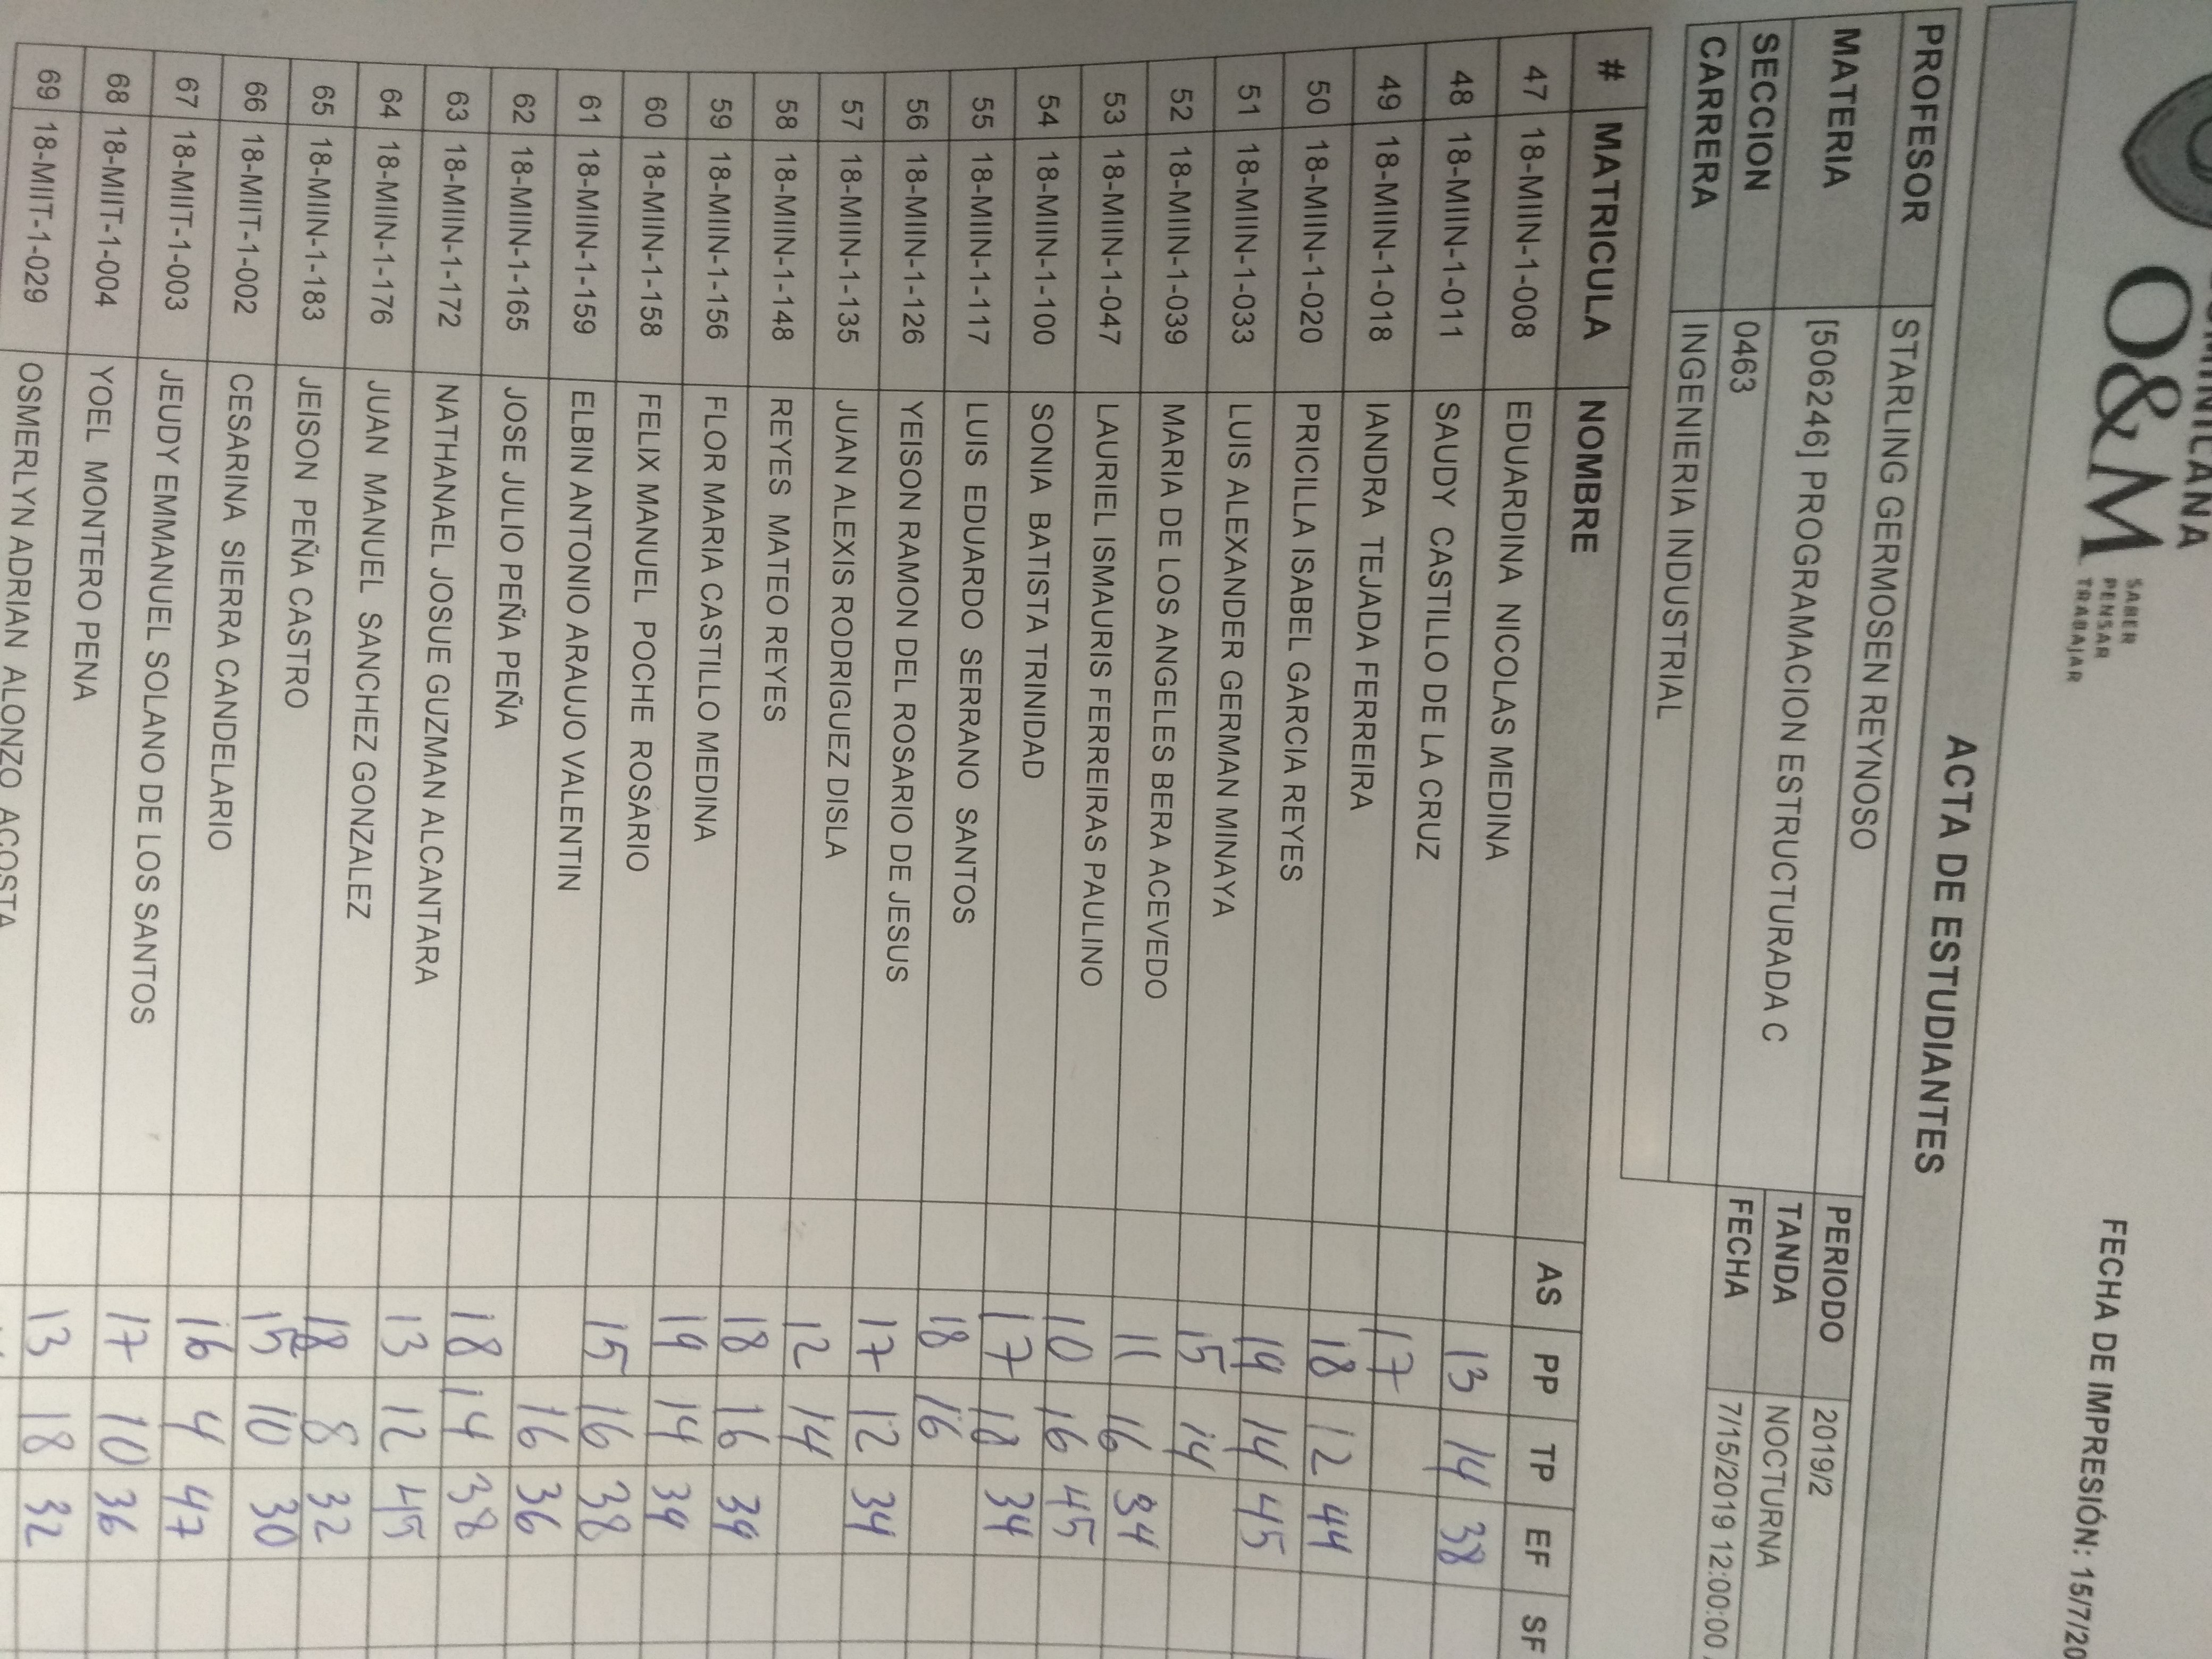 O&M
SABER
PENSAR
TRABAJAR
FECHA DE IMPRESIÓN: 15/7/20
ACTA DE ESTUDIANTES
PROFESOR STARLING GERMOSEN REYNOSO
MATERIA [506246] PROGRAMACION ESTRUCTURADA C PERIODO 2019/2
SECCION 0463 TANDA NOCTURNA
CARRERA INGENIERIA INDUSTRIAL FECHA 7/15/2019 12:00:00
# MATRICULA NOMBRE AS PP TP EF SF
47 18-MIIN-1-008 EDUARDINA NICOLAS MEDINA 13 14 38
48 18-MIIN-1-011 SAUDY CASTILLO DE LA CRUZ 17
49 18-MIIN-1-018 IANDRA TEJADA FERREIRA 18 12 44
50 18-MIIN-1-020 PRICILLA ISABEL GARCIA REYES 19 14 45
51 18-MIIN-1-033 LUIS ALEXANDER GERMAN MINAYA 15 14
52 18-MIIN-1-039 MARIA DE LOS ANGELES BERA ACEVEDO 11 16 34
53 18-MIIN-1-047 LAURIEL ISMAURIS FERREIRAS PAULINO 10 16 45
54 18-MIIN-1-100 SONIA BATISTA TRINIDAD 17 34
55 18-MIIN-1-117 LUIS EDUARDO SERRANO SANTOS 18 16
56 18-MIIN-1-126 YEISON RAMON DEL ROSARIO DE JESUS 17 12 34
57 18-MIIN-1-135 JUAN ALEXIS RODRIGUEZ DISLA 12 14
58 18-MIIN-1-148 REYES MATEO REYES 18 16 39
59 18-MIIN-1-156 FLOR MARIA CASTILLO MEDINA 19 14 39
60 18-MIIN-1-158 FELIX MANUEL POCHE ROSARIO 15 16 38
61 18-MIIN-1-159 ELBIN ANTONIO ARAUJO VALENTIN 16 36
62 18-MIIN-1-165 JOSE JULIO PEÑA PEÑA 18 14 38
63 18-MIIN-1-172 NATHANAEL JOSUE GUZMAN ALCANTARA 13 12 45
64 18-MIIN-1-176 JUAN MANUEL SANCHEZ GONZALEZ 18 8 32
65 18-MIIN-1-183 JEISON PEÑA CASTRO 15 10 30
66 18-MIIT-1-002 CESARINA SIERRA CANDELARIO 16 4 47
67 18-MIIT-1-003 JEUDY EMMANUEL SOLANO DE LOS SANTOS 17 10 36
68 18-MIIT-1-004 YOEL MONTERO PENA 13 18 32
69 18-MIIT-1-029 OSMERLYN ADRIAN ALONZO ACOSTA